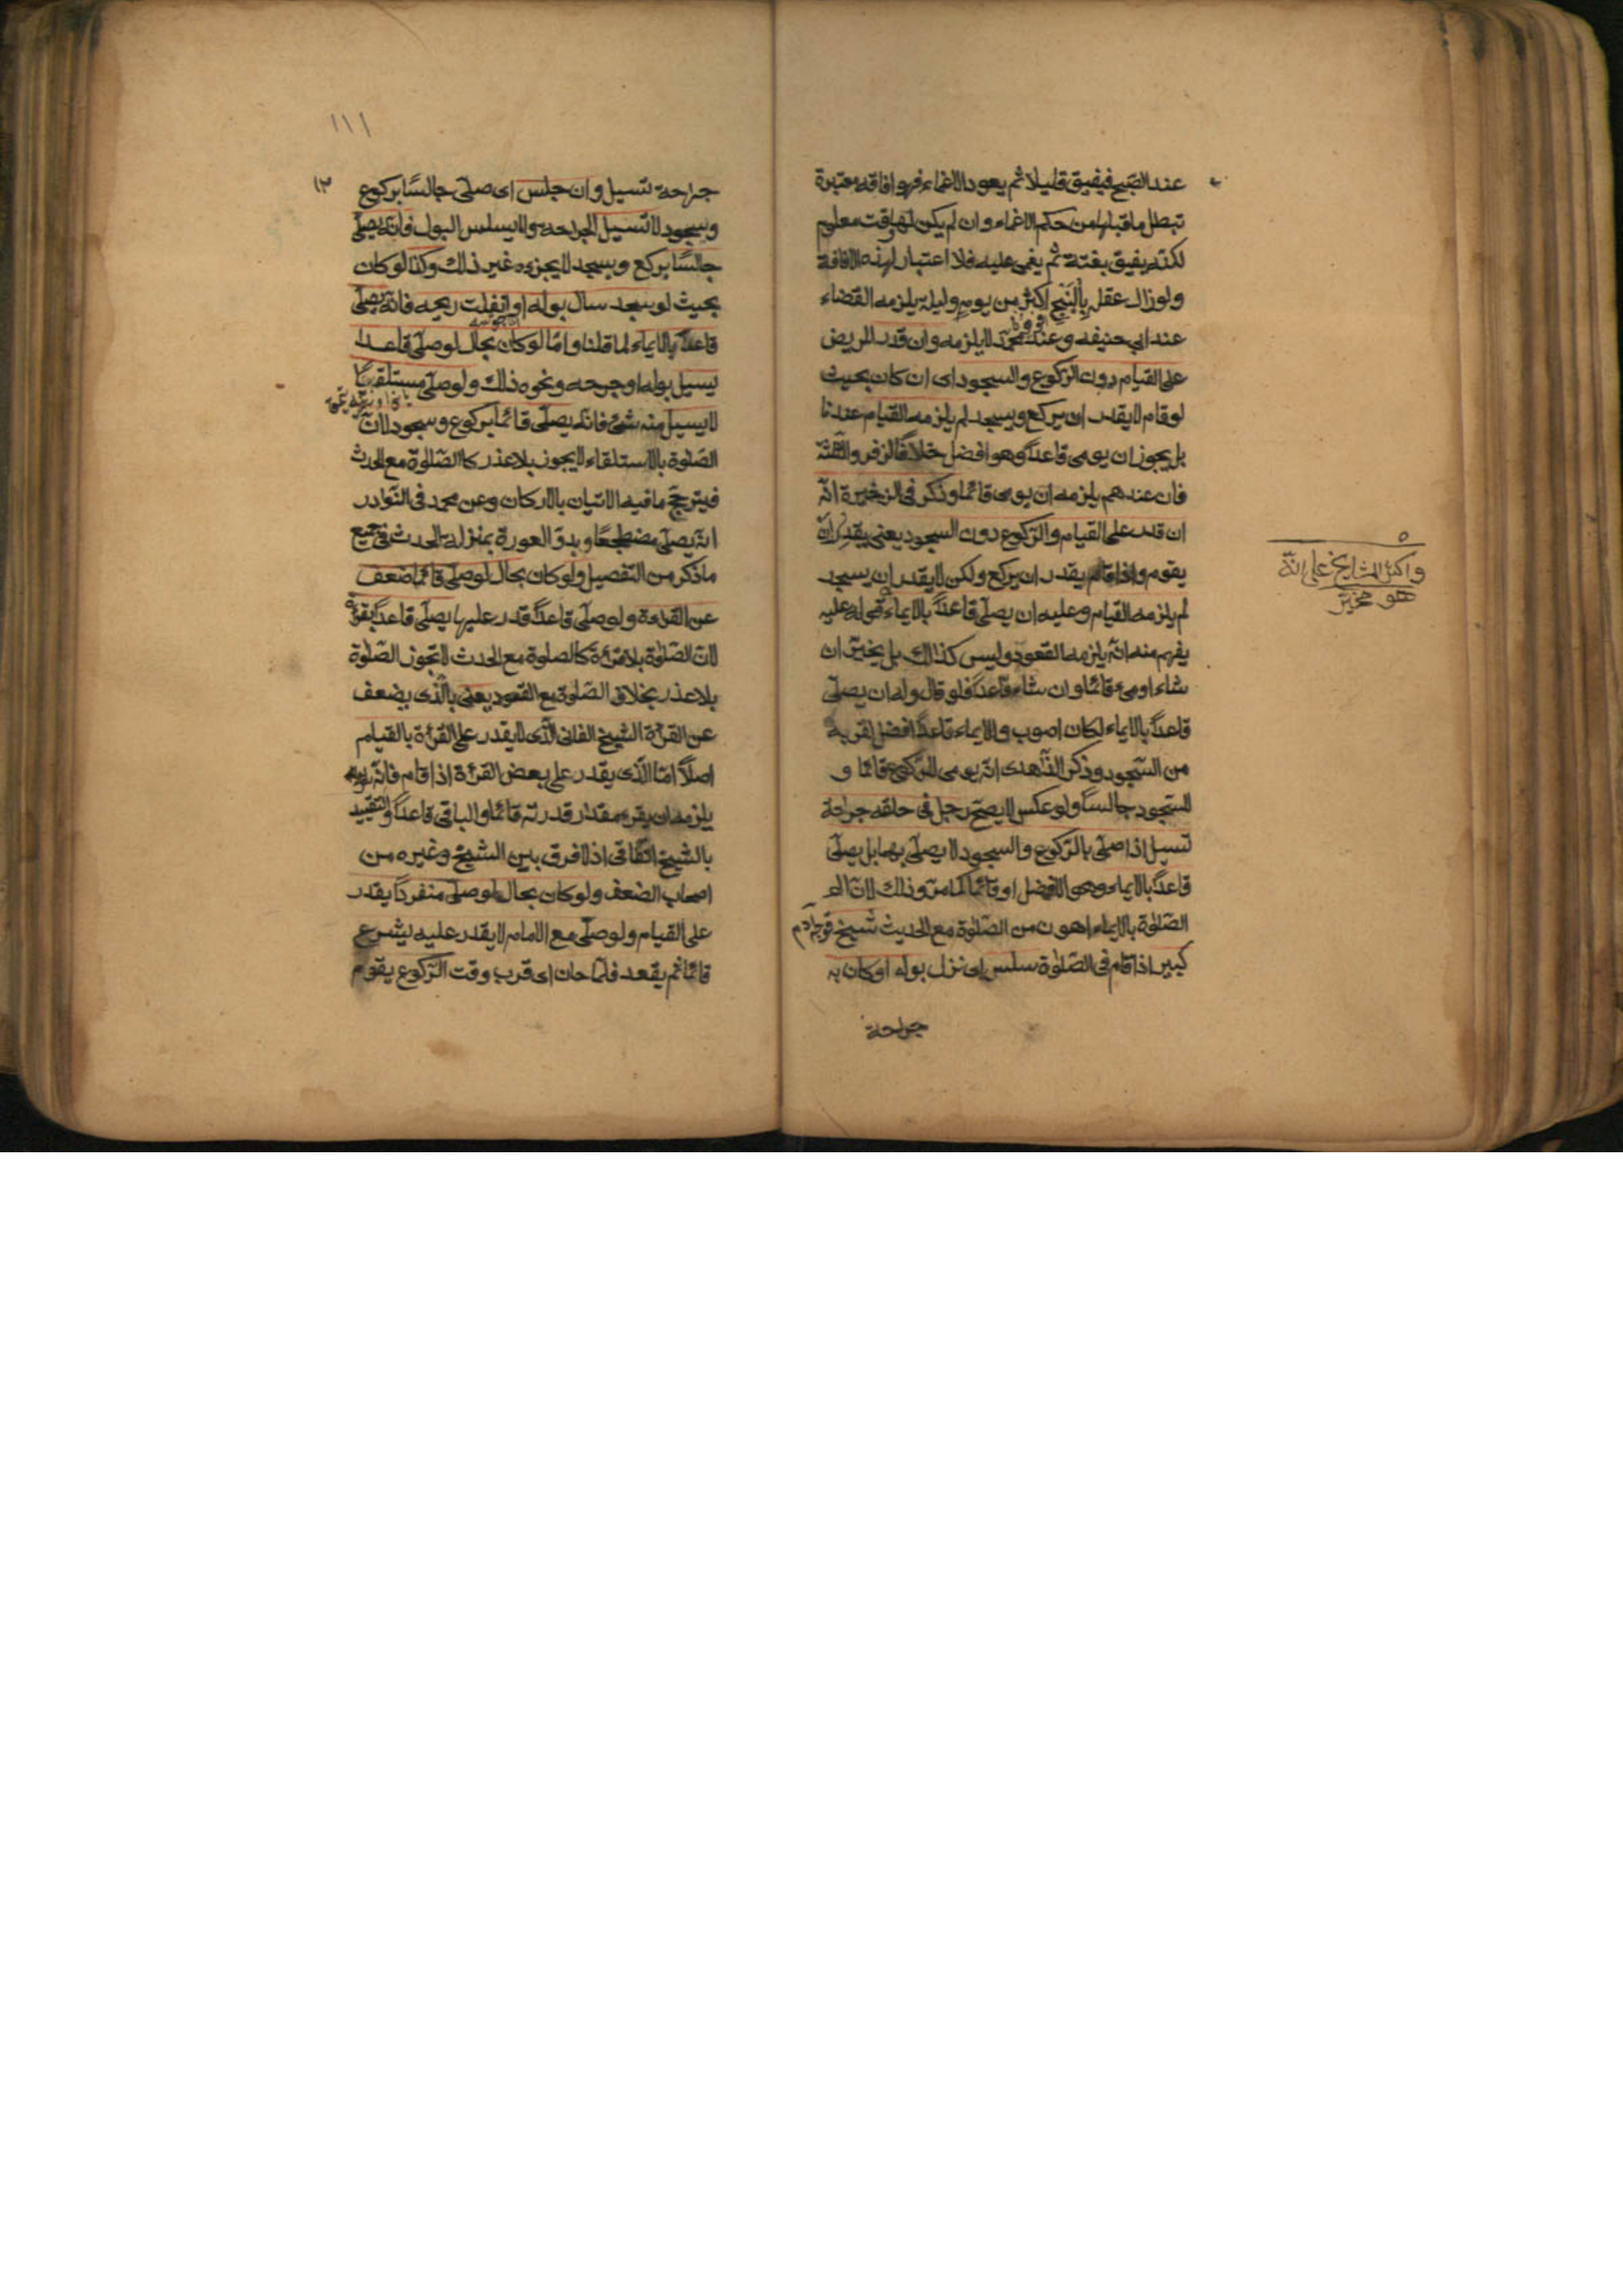 عند الصبح فيفيق قليلا ثم يعود الاغماء فهو افاقة معتبرة
تبطل ما قبلها من حكم الاغماء وان لم يكن لها وقت معلوم
لكنه يفيق بغتة ثم يغمى عليه فلا اعتبار لهذه الافاقة
ولو زال عقله بِالبَنْجِ اكثر من يوم وليلة يلزمه القضاء
عند ابى حنيفه وعند محمّد لا يلزمه وان قدر المريض
على القيام دون الركوع والسجود اى ان كان بحيث
لو قام لا يقدر ان يركع ويسجد لم يلزمه القيام عندنا
بل يجوز ان يومى قاعداً وهو افضل خلافا لزفر والثلثة
فان عندهم يلزمه ان يومى قائما وذكر فى الزخيرة انّه
ان قدر على القيام والرّكوع دون السجود يعنى يقدر ان
يقوم واذا قام يقدر ان يركع ولكن لا يقدر ان يسجد
لم يلزمه القيام وعليه ان يصلّى قاعداً بالايماء قوله عليه
يفهم منه انّه يلزمه القعود وليس كذالك بل يخيّر ان
شاء اومىء قائما وان شاء قاعداً فلو قال وله ان يصلّى
قاعداً بالايماء لكان اصوب والايماء قاعداً افضل لقربه
من السّجود وذكر الزّاهدى انّه يومى للرّكوع قائما و
للسّجود جالساً ولو عكس لا يصحّ رجل فى حلقه جراحة
تسيل اذا صلّى بالرّكوع والسجود لا يصلّى بهما بل يصلّى
قاعداً بالايماء وهو الافضل او قائما كما مرّ وذلك لانّ
الصّلوة بالايماء اهون من الصّلوة مع الحديث شيخ
كبير اذا قام فى الصّلوة سلس اى نزل بوله او كان به
جراحة
واكثر المشايخ على انّه
هو مخيّر
١١١
١٢
جراحة تسيل وان جلس اى صلّى جالسًا بركوع
وسجود لا تسيل الجراحة ولا يسلس البول فانّه يصلّى
جالسًا يركع ويسجد لا يجزءه غير ذلك وكذا لو كان
بحيث لو سجد سال بوله او انفلت ريحه فانّه يصلّى
قاعداً بالايماء لما قلنا وامّا لو كان بحال لو صلّى قاعدا
يسيل بوله او جرحه ونحوه ذلك ولو صلّى مستلقيًا
لا يسيل منه شىء فانّه يصلّى قائما بركوع وسجود لانّ
الصّلوة بالاستلقاء لا يجوز بلا عذر كا الصّلوة مع الحدث
فيترجّح ما فيه الاتيان بالاركان وعن محمد فى النّوادر
انّه يصلّى مضطجعًا وبدوّ العورة بمنزلة الحدث فى جميع
ما ذكر من التفصيل ولو كان بحال لو صلّى قائما ضعف
عن القراءة ولو صلّى قاعداً قدر عليها يصلّى قاعداً بقرأة
لانّ الصّلوة بلا قرأة كالصلوة مع الحدث لا تجوز الصّلوة
بلا عذر بخلاف الصّلوة مع القعود يعنى بالّذى يضعف
عن القرأة الشيخ الفانى الّذى لا يقدر على القرأة بالقيام
اصلاً امّا الّذى يقدر على بعض القرأة اذا قام فانّه
يلزمه ان يقرء مقدار قدرته قائما والباقى قاعداً والتقييد
بالشيخ اتّفاقى اذ لا فرق بين الشيخ وغيره من
اصحاب الضعف ولو كان بحال لو صلّى منفرداً يقدر
على القيام ولو صلّى مع الامام لا يقدر عليه يشرع
قائما ثم يقعد فلمّا حان اى قرب وقت الرّكوع يقوم